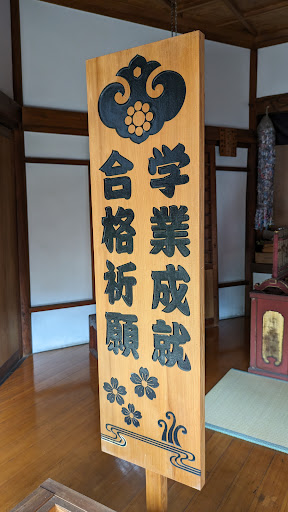 学業成就
合格祈願